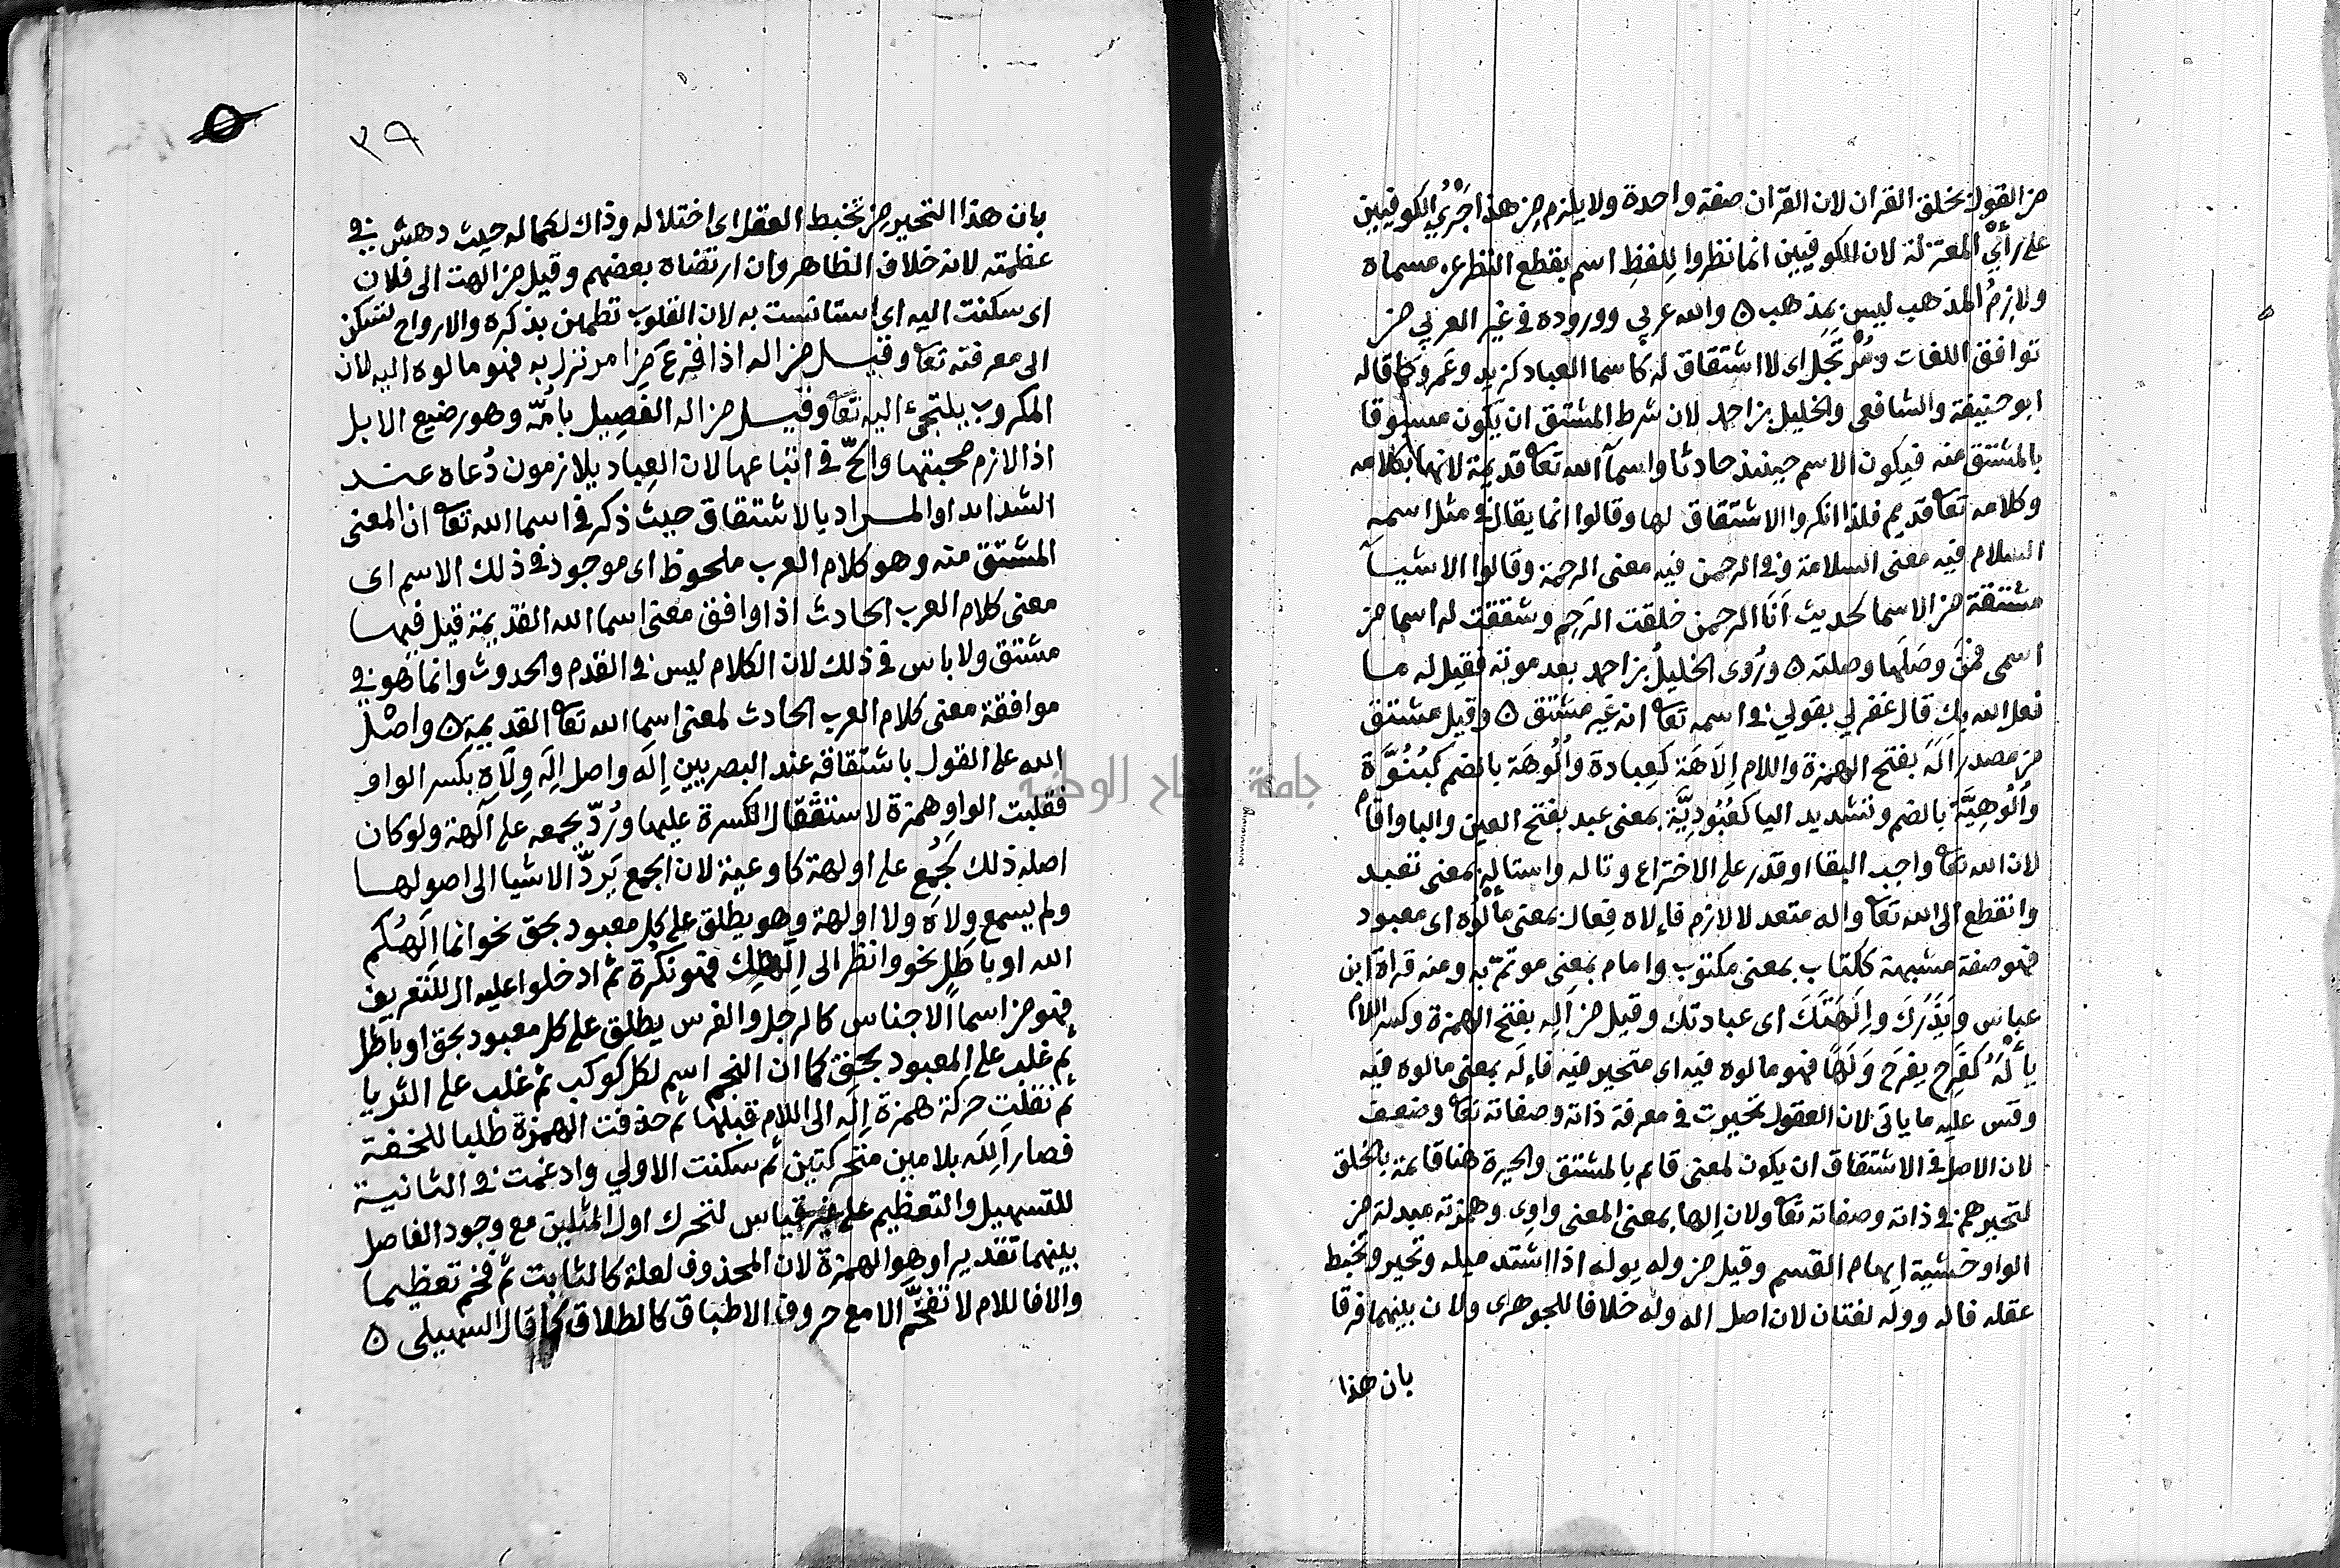 من القول بخلق القران لان القران صفة واحدة ولا يلزم من هذا جَرْيُ الكوفيين
على رأيِ المعتزلة لان الكوفيين انما نظروا لِلفظِ اسم بقطع النظر عن مسماه
ولازِمُ المذهب ليس بمذهب ٥ والله عربي ووروده في غير العربي من
توافق اللغات ومُرْتَجَل اى لا اشتقاق له كاسما العباد كزيد وعَمرو كما قاله
ابو حنيفة والشافعى والخليل بن احمد لان شرط المشتق ان يكون مسبوقا
بالمشتق منه فيكون الاسم حينئذ حادثا واسمآ الله تعا قديمة لانها بكلامه
وكلامه تعا قديم فلذا انكروا الاشتقاق لها وقالوا انما يقال في مثل اسمه
السلام فيه معنى السلامة وفي الرحمن فيه معنى الرحمة وقالوا الاشيآ
مشتقة من الاسما لحديث اَنَا الرحمن خلقت الرَحِم وشققت له اسما من
اسمى فمَن وصَلَها وصلته ٥ ورُوى الخليلُ بن احمد بعد موته فقيل له ما
فعل الله بك قال غفر لي بقولي في اسمه تعا انه غير مشتق ٥ وقيل مشتق
من مصدر اَلَهَ بفتح الهمزة واللام اِلَاهَة كَعِبادة واُلُوهَة بالضم كبُنُوَّة
واُلُوهِيَّة بالضم وتشديد اليا كعُبُودِيَّة بمعنى عبد بفتح العين والبا واقام
لان الله تعا واجب البقا او قدر على الاختراع وتاله واستاله بمعنى تعبد
وانقطع الى الله تعا واله متعد لا لازم فاِلاه فِعال بمعنى مأْلُوْه اى معبود
فهو صفة مشبهة ككِتاب بمعنى مكتوب وامام بمعنى موتمّ به ومنه قراة ابن
عباس ويَذَرَكَ واِلَهَتَكَ اى عبادتك وقيل من اَلِه بفتح الهمزة وكسر اللام
يأْلَهُ كفَرِح يفرَح وَلَهًا فهو مالوه فيه اى متحير فيه فاِلَه بمعنى مالوه فيه
وقس عليه ما ياتى لان العقول تحيرت في معرفة ذاته وصفاته تعا وضعف
لان الاصل في الاشتقاق ان يكون لمعنى قايم بالمشتق والحيرة هنا قايمة بالخلق
لتحيرهم في ذاته وصفاته تعا ولان اِلها بمعنى المعنى واوِى وهمزته مبدلة من
الواو خشية ايهام القسم وقيل من وله يوله اذا اشتد ميله وتحير وتخبط
عقله فاله ووله لغتان لان اصل اله وله خلافا للجوهرى ولان بينهما فرقا
بان هذا
٣٩
بان هذا التحير من تخبط العقل اى اختلاله وذاك لكماله حيث دهش في
عظمته لانه خلاف الظاهر وان ارتضاه بعضهم وقيل من الهت الى فلان
اى سكنت اليه اى استانست به لان القلوب تطمئن بذكره والارواح لتسكن
الى معرفته تعا وقيل من اله اذا فزِعَ من امر نزل به فهو مالوه اليه لان
المكروب يلتجئ اليه تعا وقيل من اله الفَصِيل بامِّه وهو رضيع الابل
اذا لازم صحبتها والحّ في اتباعها لان العِباد يلازمون دُعاه عند
الشدائد او المراد بالاشتقاق حيث ذكر في اسما الله تعا ان المعنى
المشتق منه وهو كلام العرب ملحوظ اى موجود في ذلك الاسم اى
معنى كلام العرب الحادث اذا وافق معنى اسما الله القديمة قيل فيها
مشتق ولا باس في ذلك لان الكلام ليس في القدم والحدوث وانما هو في
موافقة معنى كلام العرب الحادث لمعنى اسما الله تعا القديمة ٥ واصْل
الله على القول باشتقاقه عند البصريين اِلَه واصل اِلَه وِلَاه بكسر الواو
فقلبت الواو همزة لاستثقال الكسرة عليها ورُدّ بجمعه على آلهة ولو كان
اصله ذلك لجُمع على اولهة كاوعية لان الجمع يَرُدّ الاشيا الى اصولها
ولم يسمع ولاه ولا اولهة وهو يطلق على كل معبود بحق نحو انما اِلَهُكم
الله او باطِل نحو وانظر الى اِلَهِك فهو نكرة ثم ادخلوا عليه ال للتعريف
فهو من اسمآ الاجناس كالرجل والفرس يطلق على كل معبود بحق او باطل
ثم غلب على المعبود بحق كما ان النجم اسم لكل كوكب ثم غلب على الثريا
ثم نقلت حركة همزة اِلَه الى اللام قبلها ثم حذفت الهمزة طلبا للخفة
فصار اَلِلَه بلامين متحركتين ثم سكنت الاولي وادغمت في الثانية
للتسهيل والتعظيم على غير قياس لتحرك اول المثلين مع وجود الفاصل
بينهما تقديرا وهو الهمزة لان المحذوف لعلة كالثابت ثم فخم تعظيما
والا فاللام لا تفخّم الا مع حروف الاطباق كالطلاق كما قال السهيلى ٥